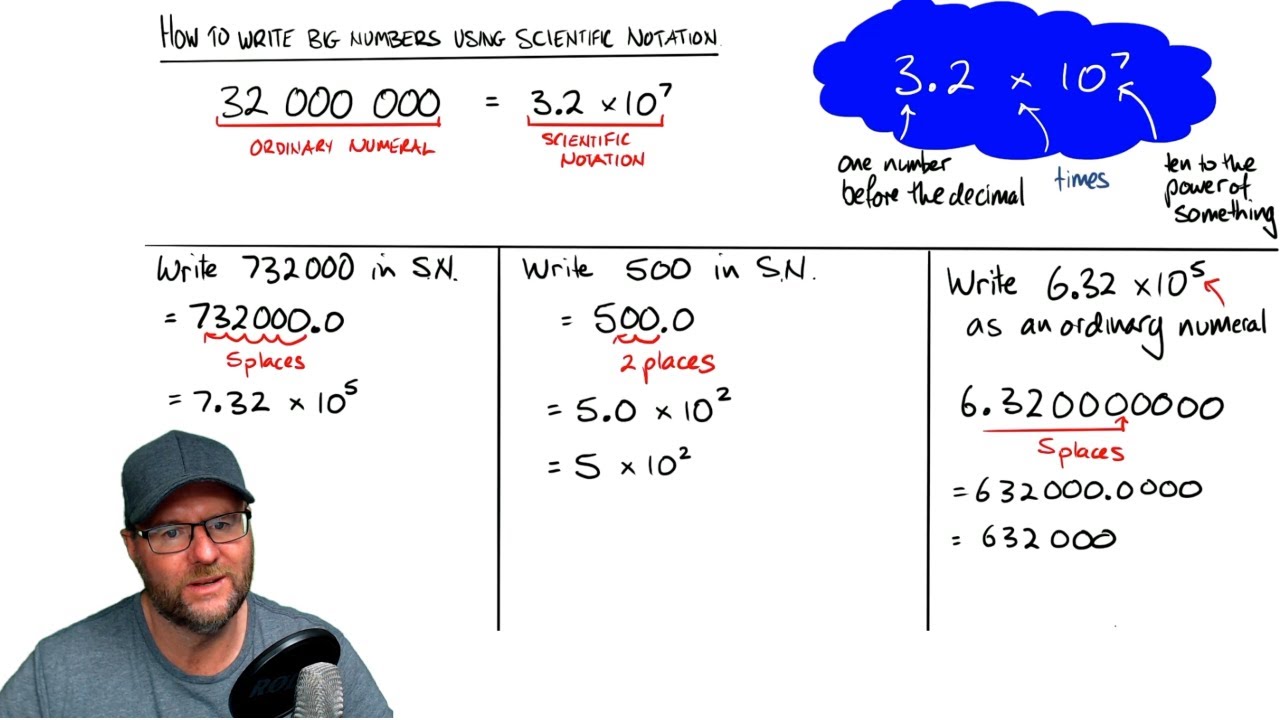 HOW TO WRITE BIG NUMBERS USING SCIENTIFIC NOTATION.
32 000 000 = 3.2 × 10⁷
ORDINARY NUMERAL
SCIENTIFIC
NOTATION
3.2 × 10⁷
one number
before the decimal
times
ten to the
power of
something
Write 732000 in S.N.
= 732000.0
5 places
= 7.32 × 10⁵
Write 500 in S.N.
= 500.0
2 places
= 5.0 × 10²
= 5 × 10²
Write 6.32 × 10⁵
as an ordinary numeral
6.320000000
5 places
= 632000.0000
= 632000